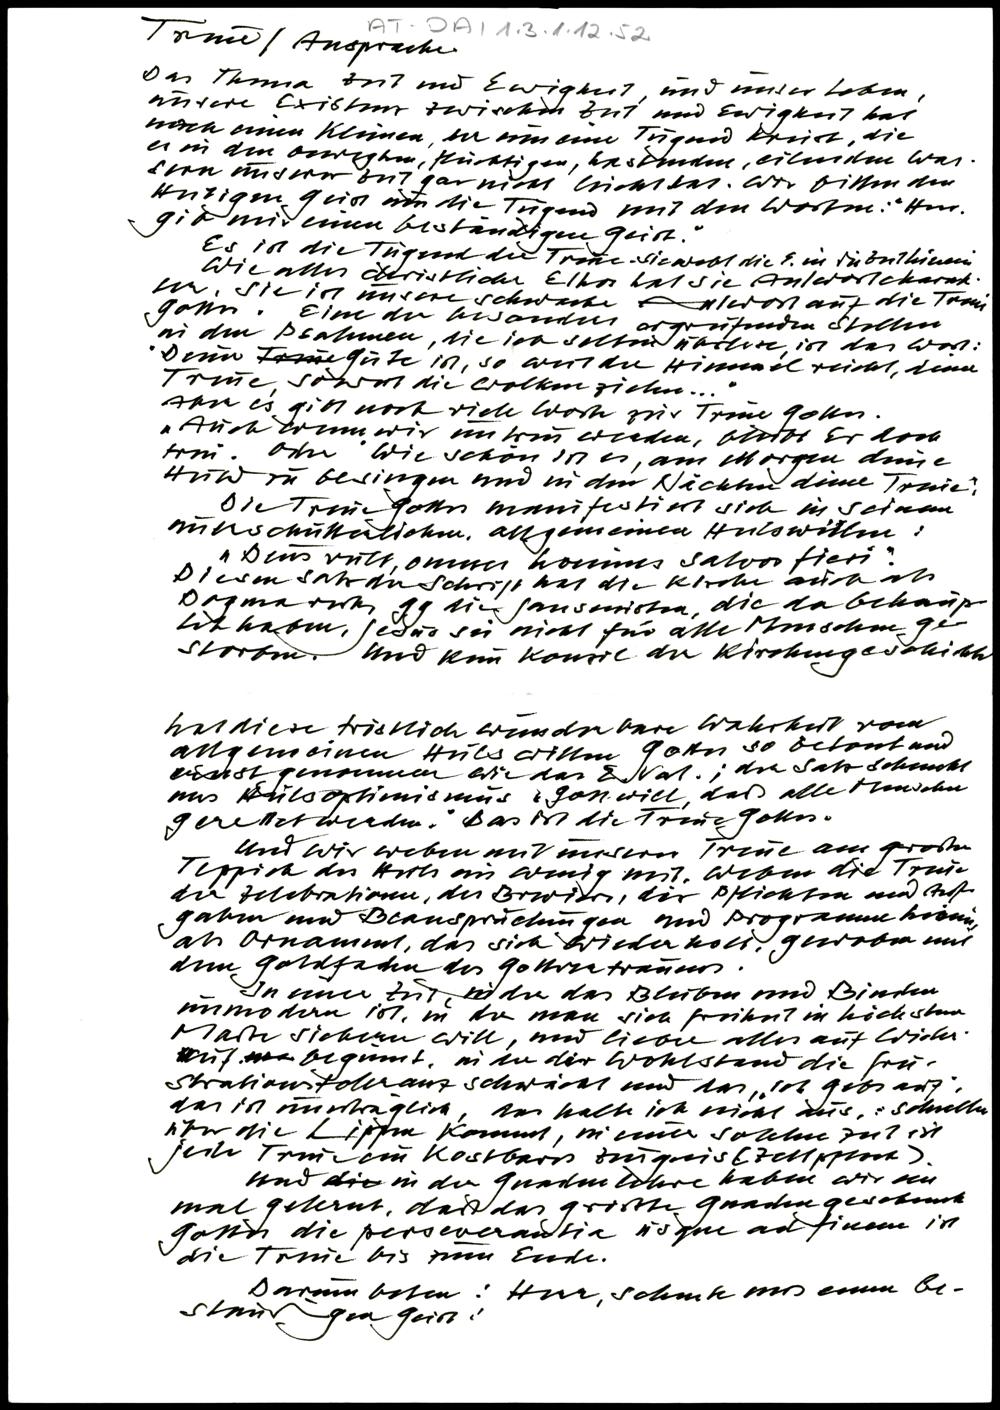 AT-DA 1.3.1.12.52
Treue / Ansprache.
Das Thema Zeit und Ewigkeit, und unser Leben,
unsere Existenz zwischen Zeit und Ewigkeit hat
noch einen kleinen, der um eine Tugend kreist, die
es in den bewegten, flüchtigen, hastenden, eilenden Was-
sern unserer Zeit gar nicht leicht hat. Wir bitten den
Heiligen Geist um die Tugend mit den Worten: "Herr,
gib mir einen beständigen Geist."
Es ist die Tugend der Treue. Sie webt die E. in die Zeit hinein
Wie alles christliche Ethos hat sie Antwortcharak-
ter. Sie ist unsere schwache Antwort auf die Treue
Gottes. Eine der besonders ergreifenden Stellen
in den Psalmen, die ich selber übe, ist das Wort:
"Deine Treue Güte ist, so weit der Himmel reicht, deine
Treue, so weit die Wolken ziehn..."
Aber es gibt noch viele Worte zur Treue Gottes.
"Auch wenn wir untreu werden, bleibt Er doch
treu. Oder "Wie schön ist es, am Morgen deine
Huld zu besingen und in den Nächten deine Treue".
Die Treue Gottes manifestiert sich in seinem
unerschütterlichen, allgemeinen Heilswillen:
"Deus vult, omnes homines salvos fieri".
Diesen Satz der Schrift hat die Kirche auch als
Dogma gg die Jansenisten, die da behaup-
tet haben, Jesus sei nicht für alle Menschen ge-
storben. Und kein Konzil der Kirchengeschichte
hat diese tröstlich wunderbare Wahrheit vom
allgemeinen Heilswillen Gottes so betont und
ernst genommen wie das 2. Vat.; der Satz schenkt
uns Heilsoptimismus: "Gott will, dass alle Menschen
gerettet werden." Das ist die Treue Gottes.
Und wir weben mit unserer Treue am großen
Teppich des Heils ein wenig mit, weben die Treue
der Zelebrationen, des Breviers, der Pflichten und Auf-
gaben und Beanspruchungen und Programme hinein,
als Ornament, das sich wiederholt, gewoben mit
dem Goldfaden des Gottvertrauens.
In einer Zeit, in der das Bleiben und Binden
unmodern ist, in der man sich Freiheit in höchstem
Maße sichern will, und lieber alles auf Wider-
ruf beginnt, in der der Wohlstand die Fru-
strationstoleranz schwächt und das "ich gebs auf",
das ist unerträglich, das halte ich nicht aus, schnell
über die Lippen kommt, in einer solchen Zeit ist
jede Treue ein kostbares Zeugnis (Zeltpflock).
Und die in der Gnadenlehre haben wir ein-
mal gelernt, daß das größte Gnadengeschenk
Gottes die perseverantia usque ad finem ist
die Treue bis zum Ende.
Darum beten: Herr, schenk uns einen be-
ständigen Geist!